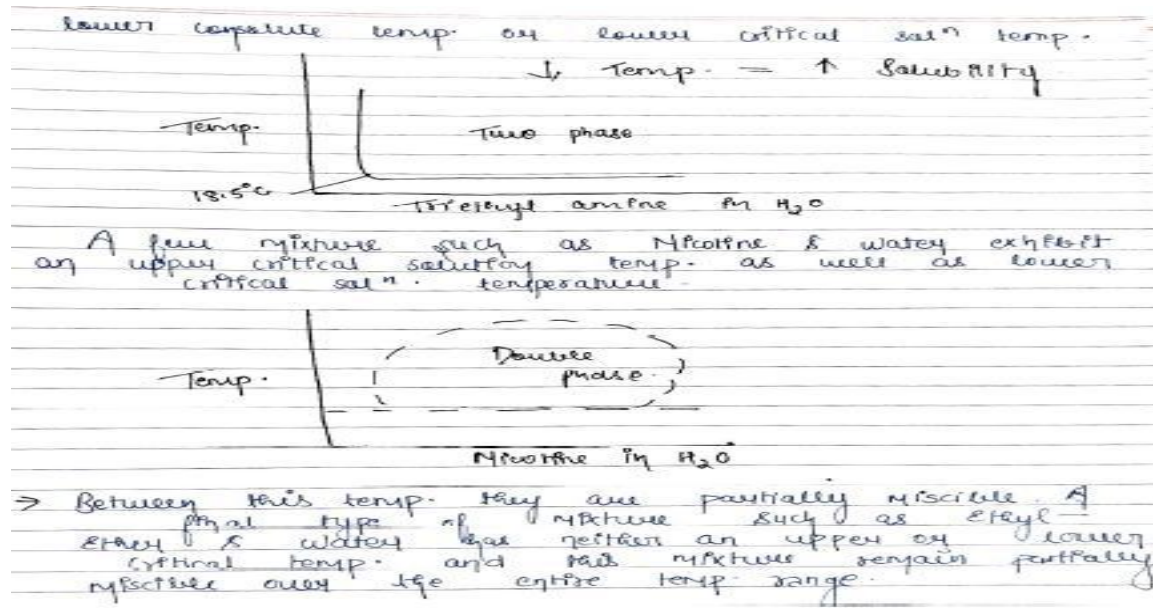 lower consolute temp. or lower critical solⁿ temp.
↓ Temp. = ↑ Solubility
Temp.
Two phase
18.5°C
Triethyl amine in H₂O
A few mixture such as Nicotine & water exhibit
an upper critical solution temp. as well as lower
critical solⁿ. temperature.
Double
phase.
Temp.
Nicotine in H₂O
→ Between this temp. they are partially miscible. A
final type of mixture such as Ethyl
Ether & water has neither an upper or lower
critical temp. and this mixture remain partially
miscible over the entire temp. range.